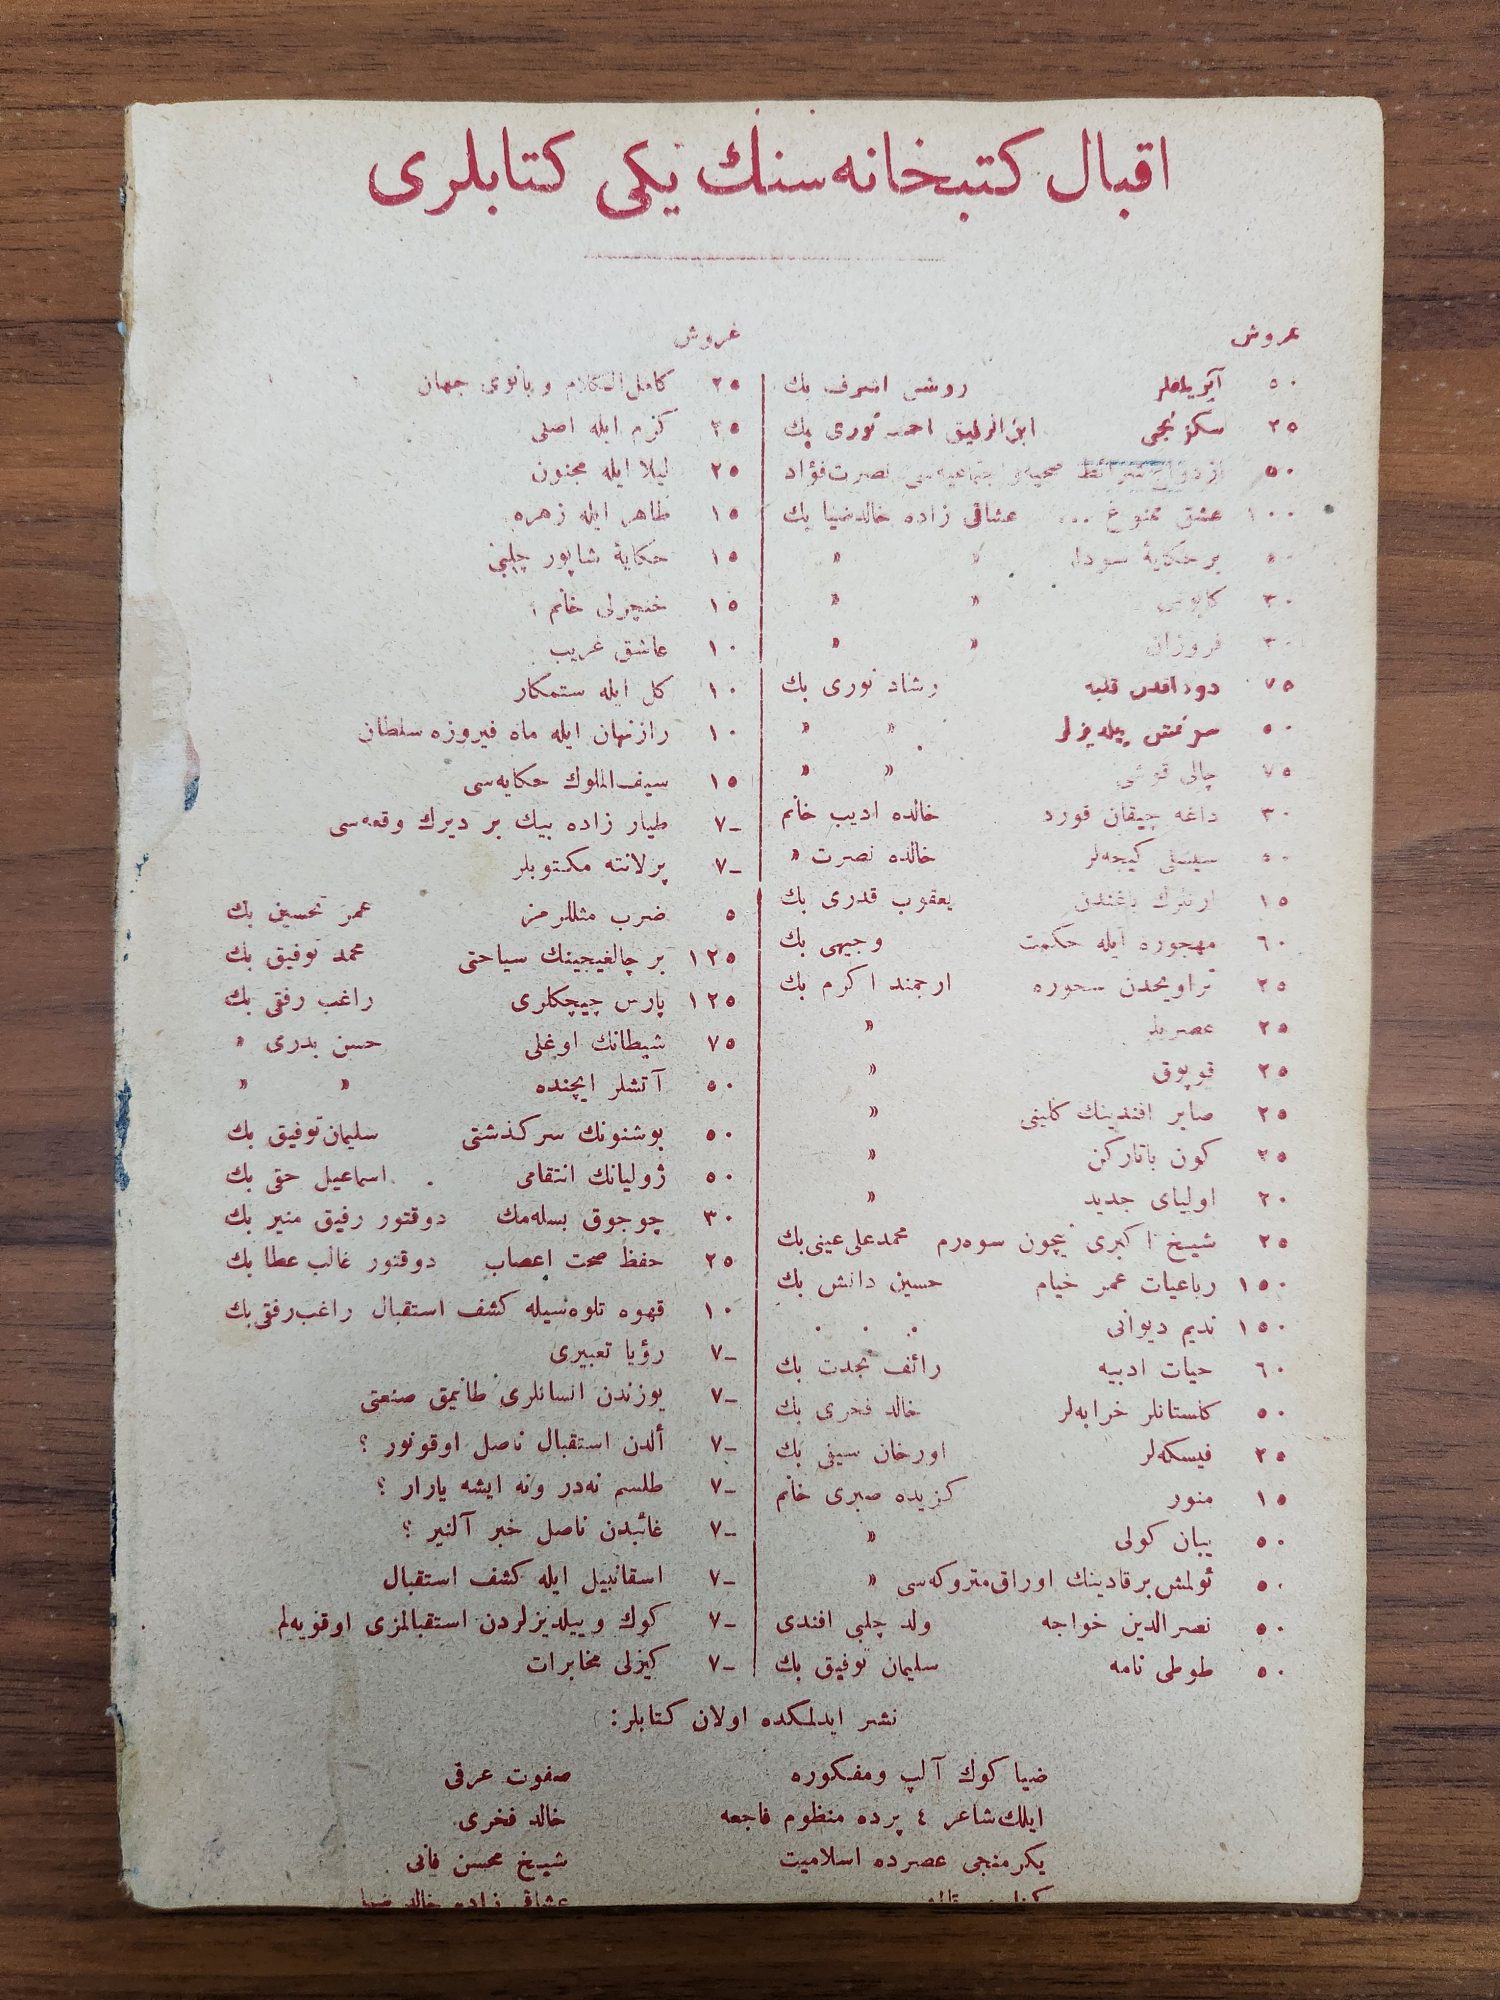 اقبال كتبخانه‌سنك يكی كتابلری
غروش
٥٠ آيريلقلر روشن اشرف بك
٢٥ سكزنجی ابن الرفيق احمد نوری بك
٥٠ ازدواج شرائط صحيه و اجتماعيه‌سی نصرت فؤاد
١٠٠ عشق ممنوع ... عشاقی زاده خالد ضيا بك
بر حكايهٔ سودا » »
٣٠ كابوس » »
٣٠ فروزان » »
٧٥ دوداقدن قلبه رشاد نوری بك
٥٠ سونمش ييلديزلر » »
٧٥ چالی قوشی » »
٣٠ داغه چيقان قورد خالده اديب خانم
٥٠ سيسلی كيجه‌لر خالده نصرت »
١٥ ارنلرك باغندن يعقوب قدری بك
٦٠ مهجوره ايله حكمت وجيهی بك
٢٥ تراويحدن سحوره ارجمند اكرم بك
٢٥ عصريلر »
٢٥ قوپوق »
٢٥ صابر افندينك كلينی »
٢٥ كون باتاركن »
٢٠ اوليای جديد »
٢٥ شيخ اكبری نيچون سوه‌رم محمد علی عينی بك
١٥٠ رباعيات عمر خيام حسين دانش بك
١٥٠ نديم ديوانی . . .
٦٠ حيات ادبيه رائف نجدت بك
٥٠ كلستانلر خرابه‌لر خالد فخری بك
٢٥ فيسكه‌لر اورخان سيفی بك
١٥ منور كزيده صبری خانم
٥٠ يبان كولی »
٥٠ ئولمش بر قادينك اوراق متروكه‌سی »
٥٠ نصرالدين خواجه ولد چلبی افندی
٥٠ طوطی نامه سليمان توفيق بك
غروش
٢٥ كامل الكلام و بانوی جهان
٢٥ كرم ايله اصلی
٢٥ ليلا ايله مجنون
١٥ طاهر ايله زهره
١٥ حكايهٔ شاپور چلبی
١٥ خنچرلی خانم
١٠ عاشق غريب
١٠ كل ايله ستمكار
١٠ رازنهان ايله ماه فيروزه سلطان
١٥ سيف الملوك حكايه‌سی
٧- طيار زاده بيك بر ديرك وقعه‌سی
٧- پرلانته مكتوبلر
٥ ضرب مثللرمز عمر تحسين بك
١٢٥ بر چالغيجينك سياحتی محمد توفيق بك
١٢٥ پارس چيچكلری راغب رفقی بك
٧٥ شيطانك اوغلی حسن بدری »
٥٠ آتشلر ايچنده » »
٥٠ بوشنونك سركذشتی سليمان توفيق بك
٥٠ ژوليانك انتقامی . اسماعيل حقی بك
٣٠ چوجوق بسله‌مك دوقتور رفيق منير بك
٢٥ حفظ صحت اعصاب دوقتور غالب عطا بك
١٠ قهوه تلوه‌سيله كشف استقبال راغب رفقی بك
٧- رؤيا تعبيری
٧- يوزندن انسانلری طانيمق صنعتی
٧- ألدن استقبال ناصل اوقونور ؟
٧- طلسم نه‌در ونه ايشه يارار ؟
٧- غائبدن ناصل خبر آلنير ؟
٧- اسقانبيل ايله كشف استقبال
٧- كوك و ييلديزلردن استقبالمزی اوقويه‌لم
٧- كيزلی مخابرات
نشر ايدلمكده اولان كتابلر:
ضيا كوك آلپ ومفكوره صفوت عرفی
ايلك شاعر ٤ پرده منظوم فاجعه خالد فخری
يكرمنجی عصرده اسلاميت شيخ محسن فانی
عشاقی زاده خالد ضيا